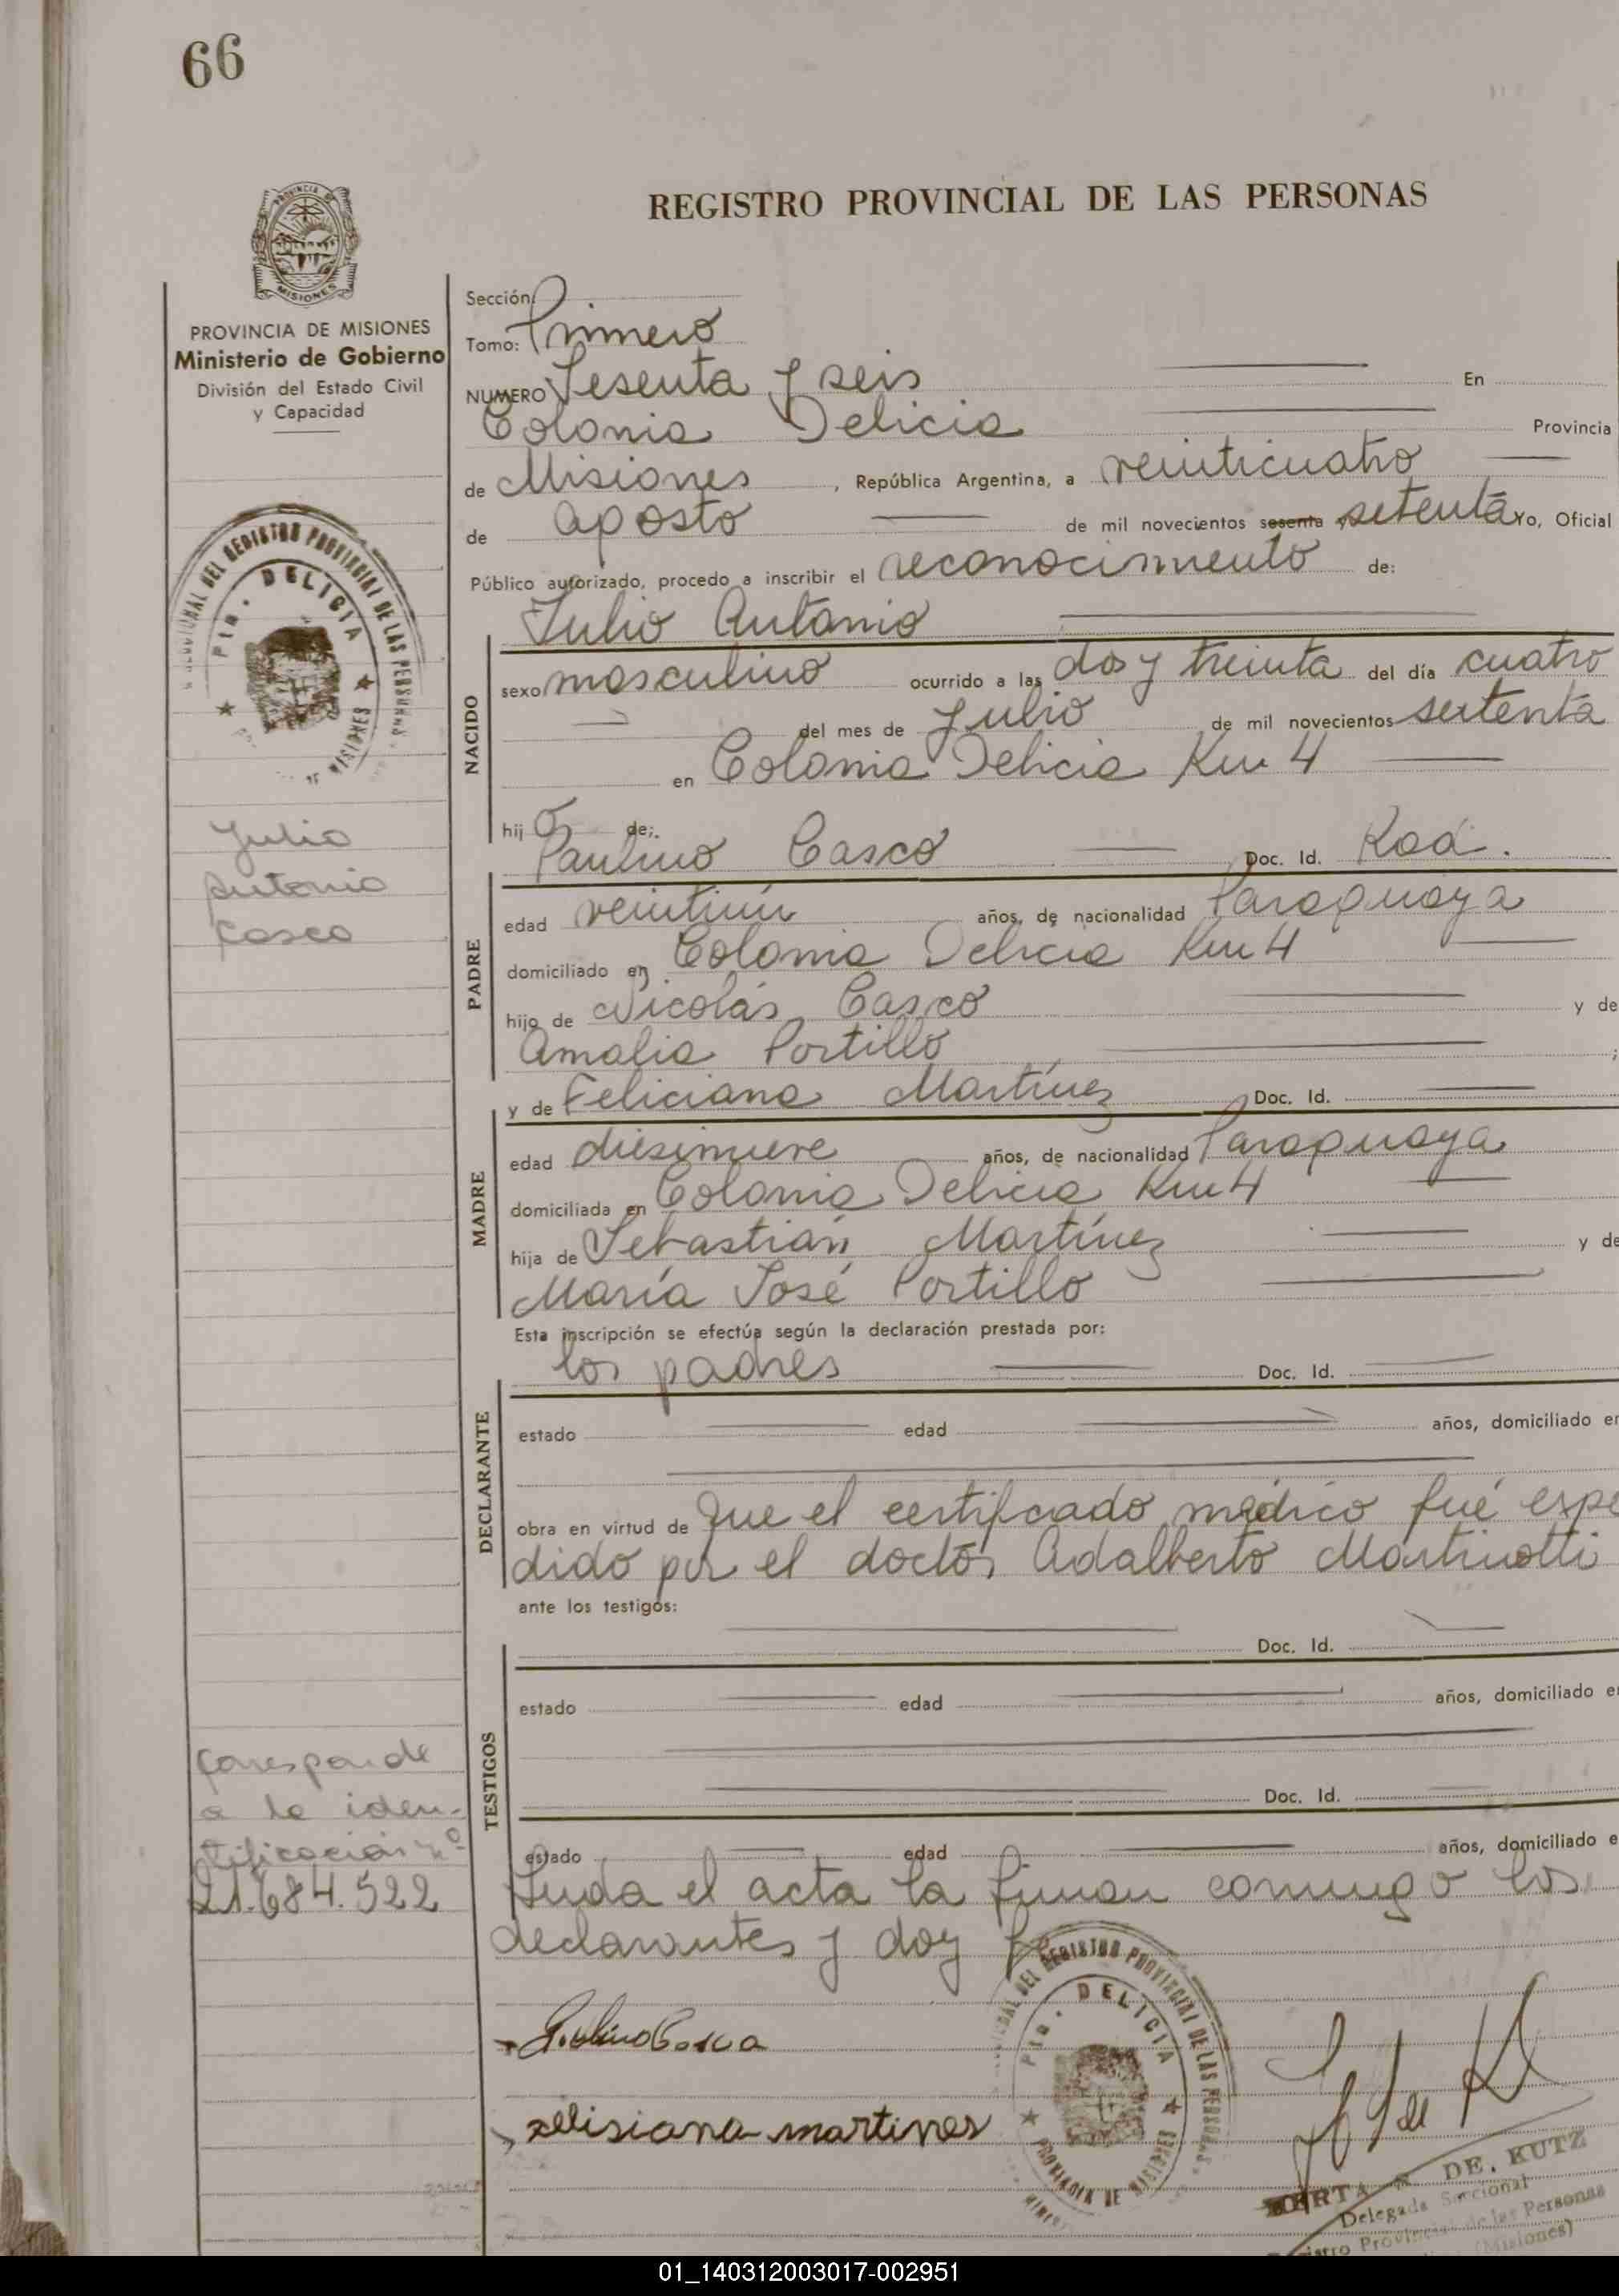 66
REGISTRO PROVINCIAL DE LAS PERSONAS
PROVINCIA
MISIONES
PROVINCIA DE MISIONES
Ministerio de Gobierno
División del Estado Civil
y Capacidad
Sección
Tomo: Primero
NUMERO Sesenta y seis En
Colonia Delicia Provincia
de Misiones, República Argentina, a veinticuatro
de agosto de mil novecientos sesenta y setenta Yo, Oficial
Público autorizado, procedo a inscribir el reconocimiento de:
Julio Antonio
NACIDO
sexo masculino ocurrido a las dos y treinta del día cuatro
del mes de Julio de mil novecientos setenta
en Colonia Delicia Km 4
hijo de:
Paulino Casco Doc. Id.
PADRE
edad veintiún años, de nacionalidad Paraguaya
domiciliado en Colonia Delicia Km 4
hijo de Nicolás Casco y de
Amalia Portillo ;
y de Feliciana Martínez Doc. Id.
MADRE
edad diesinueve años, de nacionalidad Paraguaya
domiciliada en Colonia Delicia Km 4
hija de Sebastián Martínez y de
María José Portillo
Esta inscripción se efectúa según la declaración prestada por:
los padres Doc. Id.
DECLARANTE
estado edad años, domiciliado en
obra en virtud de que el certificado médico fué expe
dido por el doctor Adalberto Martinotti
ante los testigos:
Doc. Id.
TESTIGOS
estado edad años, domiciliado en
Doc. Id.
estado edad años, domiciliado e
Leída el acta la firman conmigo los
declarantes y doy fe
Paulino Casco
felisiana martines
DEL REGISTRO PROVINCIAL DE LAS PERSONAS
Pto. DELICIA
PROVINCIA DE MISIONES
DE. KUTZ
Delegada Seccional
Registro Provincial de las Personas
(Misiones)
DEL REGISTRO PROVINCIAL DE LAS PERSONAS
Pto. DELICIA
MISIONES
Julio
Antonio
Casco
Corresponde
a la iden-
tificación nº
21.684.522
01_140312003017-002951